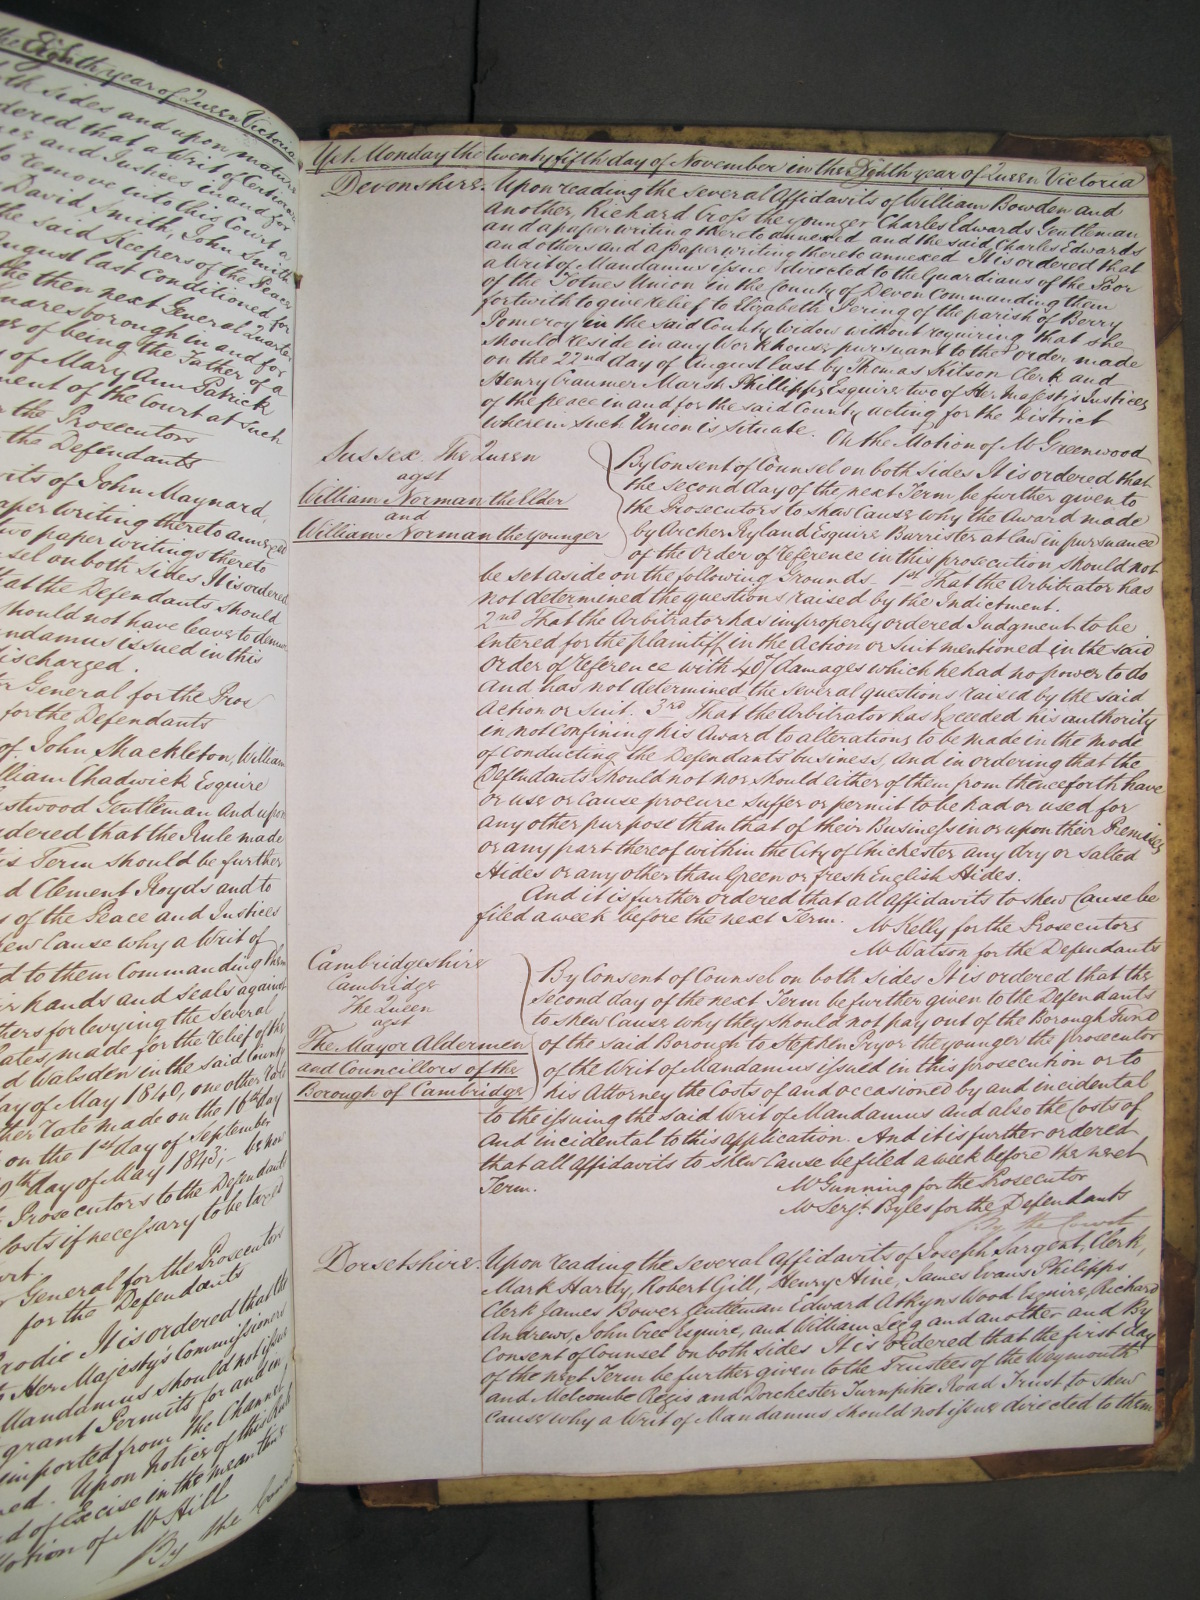 the Eighth year of Queen Victoria
th sides and upon mature
dered that a Writ of Certiorari
and Justices in and for
to remove into this Court a
David Smith, John Smith
the said Keepers of the Peace
August last Conditioned for
the then next General Quarter
naresborough in and for
of being the Father of a
of Mary Ann Patrick
ment of the Court at such
the Prosecutors
the Defendants
its of John Maynard,
aper writing thereto annexed
two paper writings thereto
sel on both sides It is ordered
that the Defendants should
should not have leave to demur
andamus issued in this
discharged.
General for the Pros
for the Defendants
of John Shackleton, William
lliam Chadwick Esquire
stwood Gentleman And upon
dered that the Rule made
is Term should be further
d Clement Royds and to
of the Peace and Justices
ew Cause why a Writ of
d to them Commanding them
hands and seals against
thers for levying the several
ates, made for the relief of the
d Walsden in the said County
ay of May 1840, one other Rate
ther rate made on the 16th day
on the 1st day of September
9th day of May 1843;
Prosecutors to the Defendants
Costs if necessary to be taxed
General for the Prosecutors
for the Defendants
rodie It is ordered that the
Her Majesty's Commissioners
Mandamus should not issue
grant Permits for and in
imported from the Channel
ed. Upon notice of this Rule
d of Excise in the mean time
otion of Mr Hill
By the Court
Yet Monday the twenty fifth day of November in the Eighth year of Queen Victoria
Devonshire. Upon reading the several Affidavits of William Bowden and
another, Richard Cross the younger Charles Edwards Gentleman
and a paper writing thereto annexed and the said Charles Edwards
and others and a paper writing thereto annexed It is ordered that
a Writ of Mandamus issue directed to the Guardians of the Poor
of the Totnes Union in the County of Devon Commanding them
forthwith to give relief to Elizabeth Pering of the parish of Berry
Pomeroy in the said County Widow without requiring that she
should reside in any Workhouse pursuant to the order made
on the 22nd day of August last by Thomas Kitson Clerk and
Henry Cranmer Marsh Phillipps Esquire two of Her Majesty's Justices
of the peace in and for the said County acting for the District
wherein such Union is situate. On the Motion of Mr Greenwood
Sussex. The Queen
agst
William Norman the Elder
and
William Norman the younger
By Consent of Counsel on both sides It is ordered that
the second day of the next Term be further given to
the Prosecutors to shew Cause why the Award made
by Archer Ryland Esquire Barrister at law in pursuance
of the Order of reference in this prosecution should not
be set aside on the following Grounds 1st That the Arbitrator has
not determined the questions raised by the Indictment.
2nd That the Arbitrator has improperly ordered Judgment to be
entered for the plaintiff in the Action or suit mentioned in the said
Order of reference with 40s/ damages which he had no power to do
And has not determined the several questions raised by the said
Action or suit. 3rd That the Arbitrator has exceeded his authority
in not confining his Award to alterations to be made in the mode
of conducting the Defendants' business, and in ordering that the
Defendants should not nor should either of them from thenceforth have
or use or cause procure suffer or permit to be had or used for
any other purpose than that of their Business in or upon their Premises
or any part thereof within the City of Chichester any dry or salted
Hides or any other than Green or fresh English Hides.
And it is further ordered that all affidavits to shew Cause be
filed a week before the next Term. Mr Kelly for the Prosecutors
Mr Watson for the Defendants
Cambridgeshire
Cambridge
The Queen
agst
The Mayor Aldermen
and Councillors of the
Borough of Cambridge
By Consent of Counsel on both sides It is ordered that the
second day of the next Term be further given to the Defendants
to shew Cause why they should not pay out of the Borough Fund
of the said Borough to Stephen Pryor the younger the prosecutor
of the Writ of Mandamus issued in this prosecution or to
his Attorney the Costs of and occasioned by and incidental
to the issuing the said Writ of Mandamus and also the Costs of
and incidental to this application. And it is further ordered
that all affidavits to shew Cause be filed a week before the next
Term. Mr Gunning for the Prosecutor
Mr Serjt. Byles for the Defendants
By the Court
Dorsetshire. Upon reading the several Affidavits of Joseph Sargent, Clerk,
Mark Hardy, Robert Gill, Henry Hine, James Evans Philipps
Clerk James Bower, Gentleman Edward Atkyns Wood Esquire, Richard
Andrews, John Cree Esquire, and William Legg and another and By
Consent of Counsel on both sides It is Ordered that the first day
of the next Term be further given to the Trustees of the Weymouth
and Melcombe Regis and Dorchester Turnpike Road Trust to shew
cause why a Writ of Mandamus should not issue directed to them